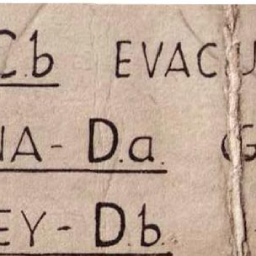 C.b EVACU
NA - D.a. G
EY - D.b.